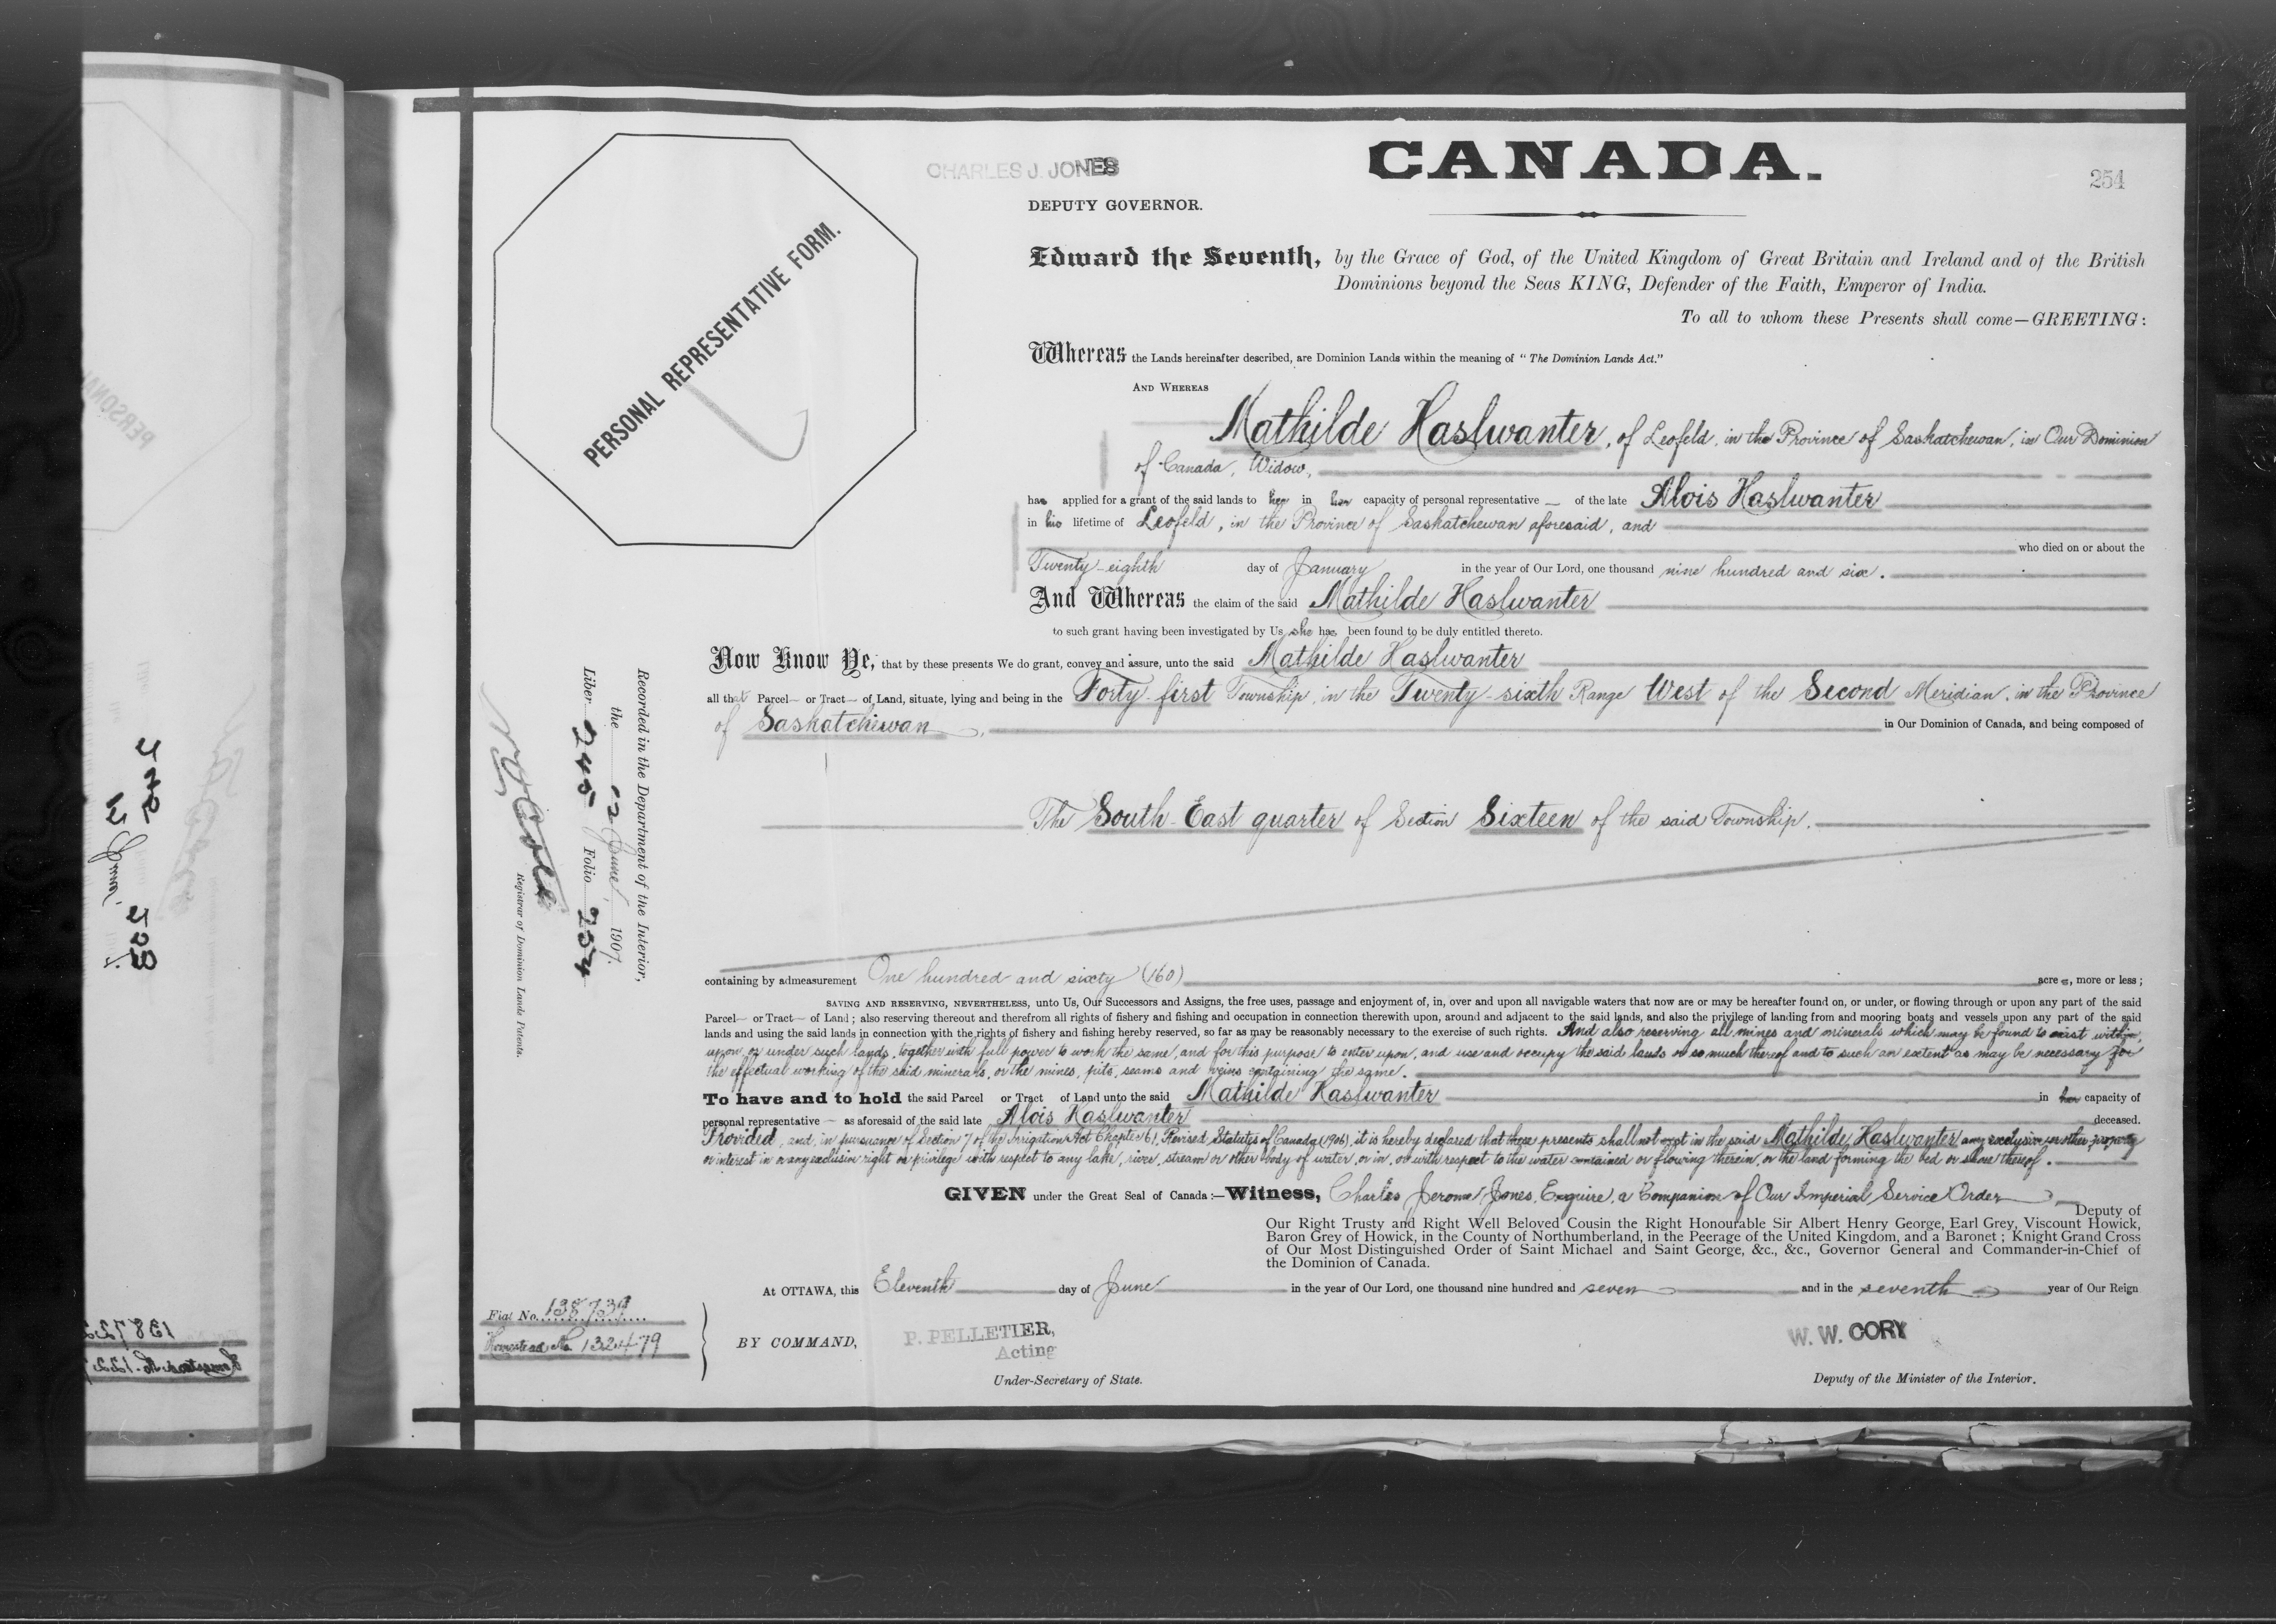 CHARLES J. JONES
CANADA.
254
DEPUTY GOVERNOR.
PERSONAL REPRESENTATIVE FORM.
Edward the Seventh, by the Grace of God, of the United Kingdom of Great Britain and Ireland and of the British
Dominions beyond the Seas KING, Defender of the Faith, Emperor of India.
To all to whom these Presents shall come—GREETING:
Whereas the Lands hereinafter described, are Dominion Lands within the meaning of "The Dominion Lands Act."
AND WHEREAS
Mathilde Haslwanter, of Leofeld, in the Province of Saskatchewan, in Our Dominion
of Canada, Widow,
has applied for a grant of the said lands to her in her capacity of personal representative — of the late Alois Haslwanter
in his lifetime of Leofeld, in the Province of Saskatchewan aforesaid, and
who died on or about the
Twenty-eighth day of January in the year of Our Lord, one thousand nine hundred and six.
And Whereas the claim of the said Mathilde Haslwanter
to such grant having been investigated by Us, she has been found to be duly entitled thereto.
Now Know Ye, that by these presents We do grant, convey and assure, unto the said Mathilde Haslwanter
all that Parcel— or Tract— of Land, situate, lying and being in the Forty-first Township, in the Twenty-sixth Range West of the Second Meridian, in the Province
of Saskatchewan, in Our Dominion of Canada, and being composed of
The South-East quarter of Section Sixteen of the said Township.
Recorded in the Department of the Interior,
the 12 June, 1907.
Liber 245 Folio 254
Registrar of Dominion Lands Patents.
containing by admeasurement One hundred and sixty (160) acres, more or less;
SAVING AND RESERVING, NEVERTHELESS, unto Us, Our Successors and Assigns, the free uses, passage and enjoyment of, in, over and upon all navigable waters that now are or may be hereafter found on, or under, or flowing through or upon any part of the said
Parcel— or Tract— of Land; also reserving thereout and therefrom all rights of fishery and fishing and occupation in connection therewith upon, around and adjacent to the said lands, and also the privilege of landing from and mooring boats and vessels upon any part of the said
lands and using the said lands in connection with the rights of fishery and fishing hereby reserved, so far as may be reasonably necessary to the exercise of such rights. And also reserving all mines and minerals which may be found to exist within,
upon, or under such lands, together with full power to work the same, and for this purpose to enter upon, and use and occupy the said lands or so much thereof and to such an extent as may be necessary for
the effectual working of the said minerals, or the mines, pits, seams and veins containing the same.
To have and to hold the said Parcel or Tract of Land unto the said Mathilde Haslwanter in her capacity of
personal representative — as aforesaid of the said late Alois Haslwanter deceased.
Provided, and, in pursuance of Section 7 of the Irrigation Act Chapter 61, Revised Statutes of Canada (1906), it is hereby declared that these presents shall not vest in the said Mathilde Haslwanter any exclusive or other property
or interest in or any exclusive right or privilege with respect to any lake, river, stream or other body of water, or in, or with respect to the water contained or flowing therein, or the land forming the bed or shore thereof.
GIVEN under the Great Seal of Canada:—Witness, Charles Jerome Jones, Esquire, a Companion of Our Imperial Service Order
Deputy of
Our Right Trusty and Right Well Beloved Cousin the Right Honourable Sir Albert Henry George, Earl Grey, Viscount Howick,
Baron Grey of Howick, in the County of Northumberland, in the Peerage of the United Kingdom, and a Baronet; Knight Grand Cross
of Our Most Distinguished Order of Saint Michael and Saint George, &c., &c., Governor General and Commander-in-Chief of
the Dominion of Canada.
At OTTAWA, this Eleventh day of June in the year of Our Lord, one thousand nine hundred and seven and in the seventh year of Our Reign
Fiat No. 138739
Homestead No. 132479
BY COMMAND,
P. PELLETIER,
Acting
Under-Secretary of State.
W. W. CORY
Deputy of the Minister of the Interior.